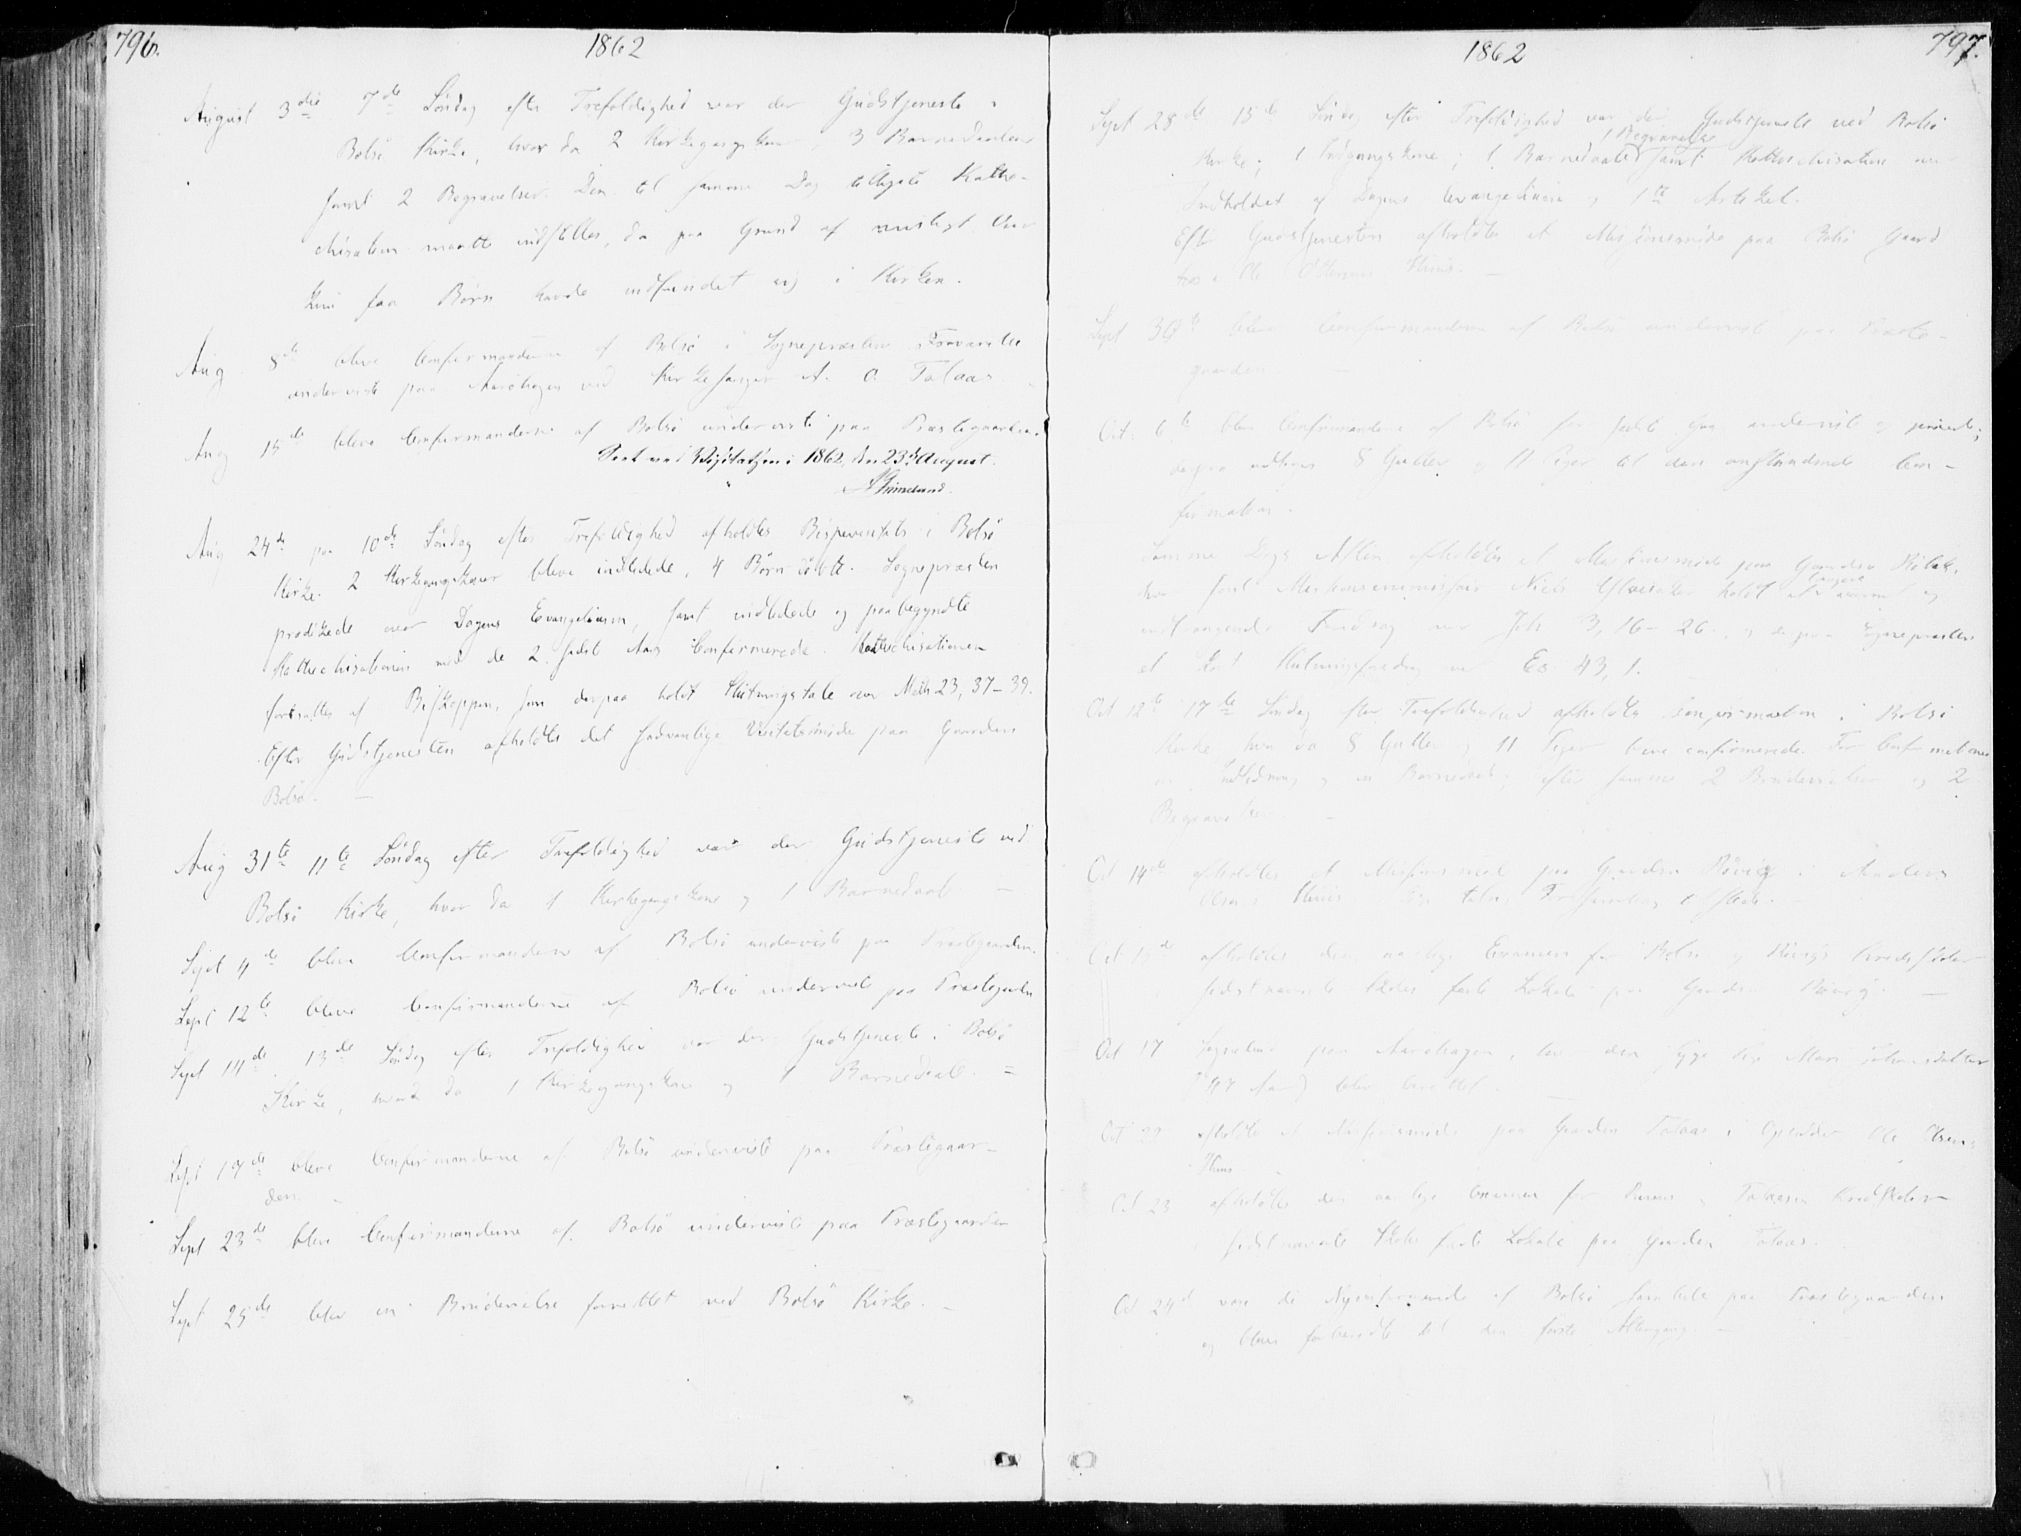 796.
1862
August 3die 7de Söndag efter Trefoldighed var der Gudstjeneste i
Bolsö Kirke, hvor da 2 Kirkegangskoner, 3 Barnedaaber
samt 2 Begravelser. Den til samme Dag Kathe-
chisation maatte indstilles, da paa Grund af
kun faa Börn havde indfundet sig i Kirken.
Aug 8de bleve Confirmanderne af Bolsö i Sognepræstens Fraværelse
underviste paa Aaröhagen ved Kirkesanger A. O. Talaas.
Aug 15de bleve Confirmanderne af Bolsö underviste paa Præstegaarden.
Seet ved Visitatsen i 1862, den 23de August.
Grimelund.
Aug 24de paa 10de Söndag efter Trefoldighed afholdtes Bispevisitats i Bolsö
Kirke. 2 Kirkegangskoner bleve indledede, 4 Börn döbte. Sognepræsten
prædikede over Dagens Evangelium, samt indledede og paabegyndte
Kathechisationen med de 2 sidste Aars Confirmerede. Kathechisationen
fortsattes af Biskoppen, som derpaa holdt Slutningstale over Mth 23, 37-39.
Efter Gudstjenesten afholdtes det sædvanlige Visitatsmöde paa Gaarden
Bolsö. —
Aug 31te 11te Söndag efter Trefoldighed var der Gudstjeneste ved
Bolsö Kirke, hvor da 1 Kirkegangskone og 1 Barnedaab —
Sept 4de bleve Confirmanderne af Bolsö underviste paa Præstegaarden.
Sept 12te bleve Confirmanderne af Bolsö underviste paa Præstegaarden
Sept 14de 13de Söndag efter Trefoldighed var der Gudstjeneste i Bolsö
Kirke, hvor da 1 Kirkegangskone og 1 Barnedaab. —
Sept 19de bleve Confirmanderne af Bolsö underviste paa Præstegaar-
den. —
Sept 23de bleve Confirmanderne af Bolsö underviste paa Præstegaarden
Sept 25de blev en Brudevielse forrettet ved Bolsö Kirke. —
797.
1862
Sept 28de 15de Söndag efter Trefoldighed var der Gudstjeneste ved Bolsö
1 Begravelse
Kirke; 1 Indgangskone; 1 Barnedaab samt Kathechisation over
Indholdet af Dagens Evangelium og 1te Artikel.
Efter Gudstjenesten afholdtes et Missionsmöde paa Bolsö Gaard
hos Ole Huus. —
Sept 30te bleve Confirmanderne af Bolsö underviste paa Præste-
gaarden. —
Oct 6te bleve Confirmanderne af Bolsö for sidste Gang underviste og
derpaa udtoges 8 Gutter og 11 Piger til den anstundende Con-
firmation.
Samme Dags Aften afholdtes et Missionsmöde paa Gaarden
længere
hvor först Missionsemissær Niels holdt et varmt og
indtrængende Foredrag over Joh 3, 16-26, og derpaa Sognepræsten
et kort Slutningsforedrag over Es. 43, 1.
Oct 12te 17de Söndag efter Trefoldighed afholdtes Confirmation i Bolsö
Kirke, hvor da 8 Gutter og 11 Piger bleve confirmerede. För Confirmationen
en Indledning og en Barnedaab; efter samme 2 Brudevielser og 2
Begravelser. —
Oct 14de afholdtes et Missionsmöde paa Gaarden Rövig i Anders
Olsens Huus.
Oct 15de afholdtes den aarlige Examen for Bolsö og Rövigs Kredsskoler
sidstnævnte Skoles faste Lokale paa Gaarden Rövig. —
Oct 17 Sognebud paa Aaröhagen, hvor den syge Pige Mari Johnsdatter
(47 Aar) blev berettet.
Oct 22 afholdtes et Missionsmöde paa Gaarden Talaas i Ole Olsens
Huus. —
Oct 23 afholdtes den aarlige Examen for og Talaasen Kredsskoler
i sidstnævnte Skoles faste Lokale paa Gaarden Talaas.
Oct 24de vare de Nyconfirmerede af Bolsö samlede paa Præstegaarden
og bleve forberedte til den förste Altergang. —